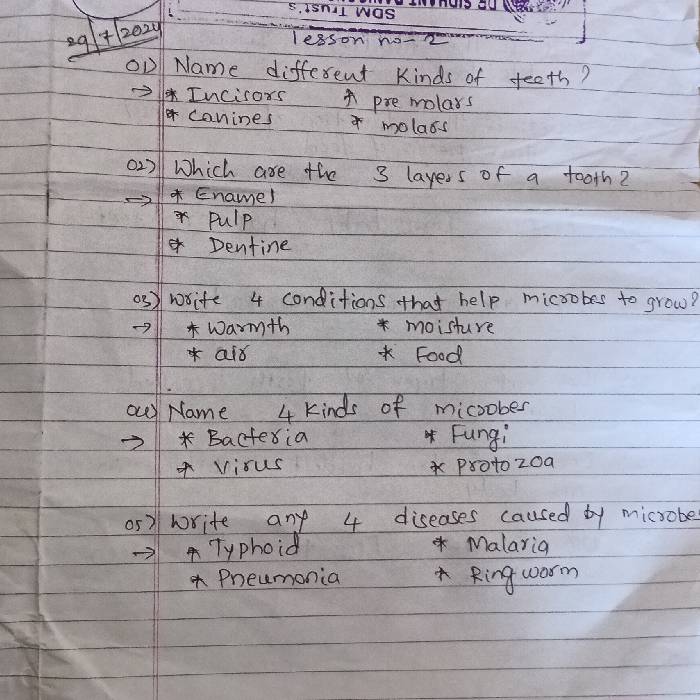 SDM TRUST'S
29/7/2024
lesson no-2
01) Name different Kinds of teeth?
→ * Incisors * premolars
* Canines * molars
02) Which are the 3 layers of a tooth?
→ * Enamel
* Pulp
* Dentine
03) Write 4 conditions that help microbes to grow?
→ * Warmth * moisture
* air * Food
04) Name 4 Kinds of microbes
→ * Bacteria * Fungi
* Virus * Protozoa
05) Write any 4 diseases caused by microbe
→ * Typhoid * Malaria
* Pneumonia * Ring worm